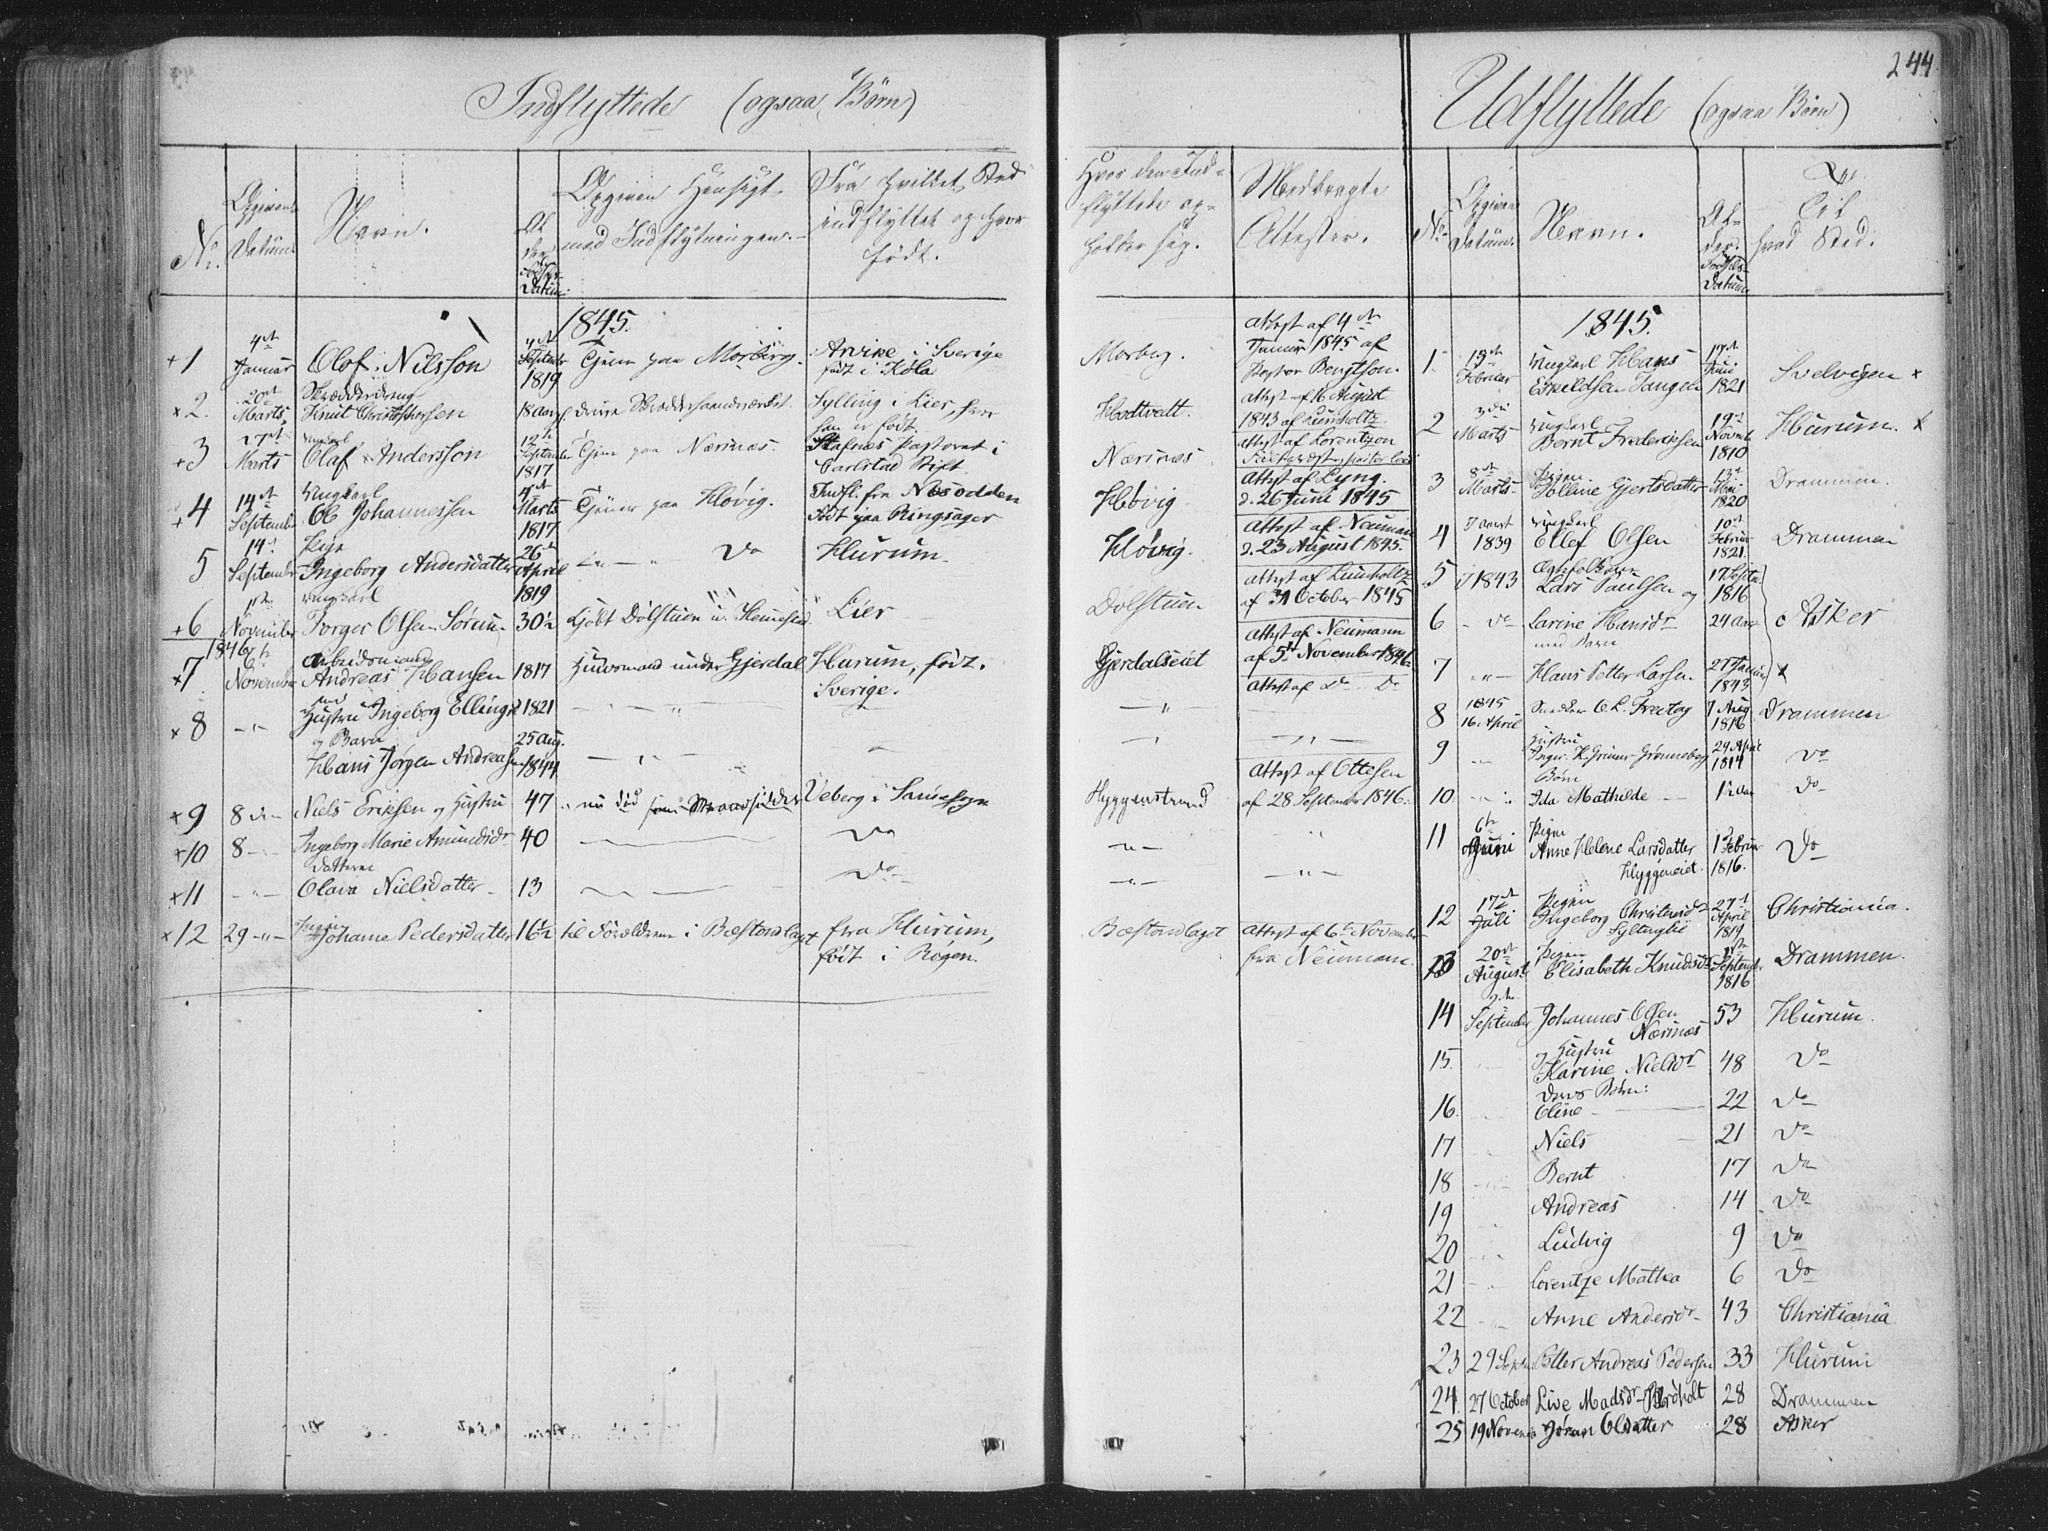 244
Indflyttede (ogsaa Børn)
No. Opgivne Datum Navn. Alder Fødsels-Datum Opgiven Hensigt med Indflytningen. Fra hvilket Sted indflyttet og hvor født. Hvor den Indflyttede opholder sig. Medbragte Attester.
1845.
+1 4de Januar Olof Nilsson September 1819 Tjene paa Morberg. Arvike i Sverige født i Köla Morberg. Attest af 4de Januar 1845 af Pastor Bengtson.
×2. 20de Marts Skrædderdreng Knut Christophersen 18 aar Sylling i Lier, hvor han er født. Attest af 16 August 1843 af Lumholtz
+3 27de Marts Ungkarl Olaf Andersson 12te September 1817 Tjene paa Nærsnæs. Pastorat i Carlstad Stift. Nærsnæs Attest af Lorentzon
+4 14de September Ungkarl Ole Johannessen Marts 1817 Tjener paa Høvig. Indfl. fra Nesodden Født paa Ringsager Høvig Attest af Lyng. d. 26 Juni 1845
5 14de September Pige Ingeborg Andersdatter 26de April 1819 Do Hurum. Høvig. Attest af Neumann d. 23 August 1845.
+6 November Ungkarl Torger Olsen Sørum 30½ Kjøbt Dølstuen Lier Dølstuen Attest af Lumholtz af 31 October 1845
1846
×7 6te November Arbeidsmand Andreas Hansen 1817 Huusmand under Gjerdal Hurum, født i Sverige. Gjerdalseiet Attest af Neumann af 5te November 1846.
×8 -"- Hustru Ingeborg Ellingsd 1821 -"- -"- Attest af Do Do
og Barn Hans Jørgen Andreasen 25 Aug. 1844 -"- -"- -"-
×9 8 Niels Eriksen og Hustru 47 Hyggenstrand Attest af Ottesen af 28 September 1846.
×10 8 Ingeborg Marie Amundsdr 40 Do -"- -"-
×11 -"- Datteren Olava Nielsdatter 13 Do -"- -"-
×12 29 -"- Pigen Johanne Pedersdatter 16½ til Forældrene i Bæstandlaget fra Hurum, født i Røgen. Bæstandlaget Attest af 6te November fra Neumann.
Udflyttede (ogsaa Børn)
No. Opgivne Datum. Navn. Alder. Fødsels-Datum Til hvad Sted.
1845.
1. 15de Februar Ungkarl Hans Eskildsen Tangen Juni 1821 Svelvigen ×
2 3die Marts Ungkarl Bernt Frederiksen 19de Novemb 1810 Hurum. ×
3 8de Marts Pigen Golline Gjertsdatter 13de Mai 1820 Drammen.
4 1839 Ungkarl Ellef Olsen 10de Februar 1821. Drammen
5 1843 Ægtefolkene Lars Paulsen og 17 Septbr 1816
6 Do Larine Hansdr med Barn 24 Aar Asker
7 -"- Hans Petter Larsen 27 Januar 1843 ×
8 1845 16 April Snedker C. L. Freitag 7 Aug 1816 Drammen
9 -"- Hustru Inger K. Grønneberg 29 April 1814 Do
10 -"- Børn Ida Mathilde 1½ Aar Do
11 6te Juni Pigen Anne Helene Larsdatter Hyggeneiet. 1 Februar 1816. Do
12 17de Juli Pigen Ingeborg Christensd 27de April 1819 Christiania.
13 20de August Pigen Elisabeth Knudsd September 1816 Drammen.
14 September Johannes Olsen Nærsnæs 53 Hurum.
15. og Hustru Karine Nielsdr 48 Do
16. Deres Børn: Oline 22 Do
17 Niels 21 Do
18 -"- Bernt 17 Do
19 Andreas 14 Do
20 -"- Ludvig 9 Do
21 -"- Lorentze Mathea 6 Do
22 -"- Anne Andersdr 43 Christiania
23 29 Septbr Petter Andreas Pedersen 33 Hurum
24. 27 October Live Madsdr 28 Drammen
25 19 Novemb Jøran Olsdatter 28 Asker